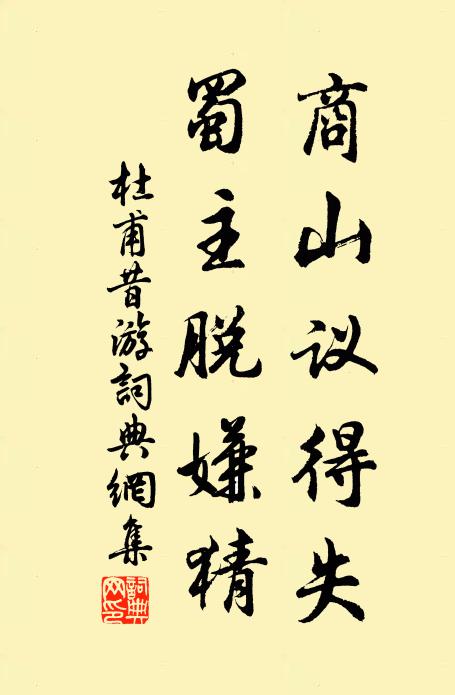 商山议得失
蜀主脱嫌猜
杜甫昔游詞典網集
詞典网印